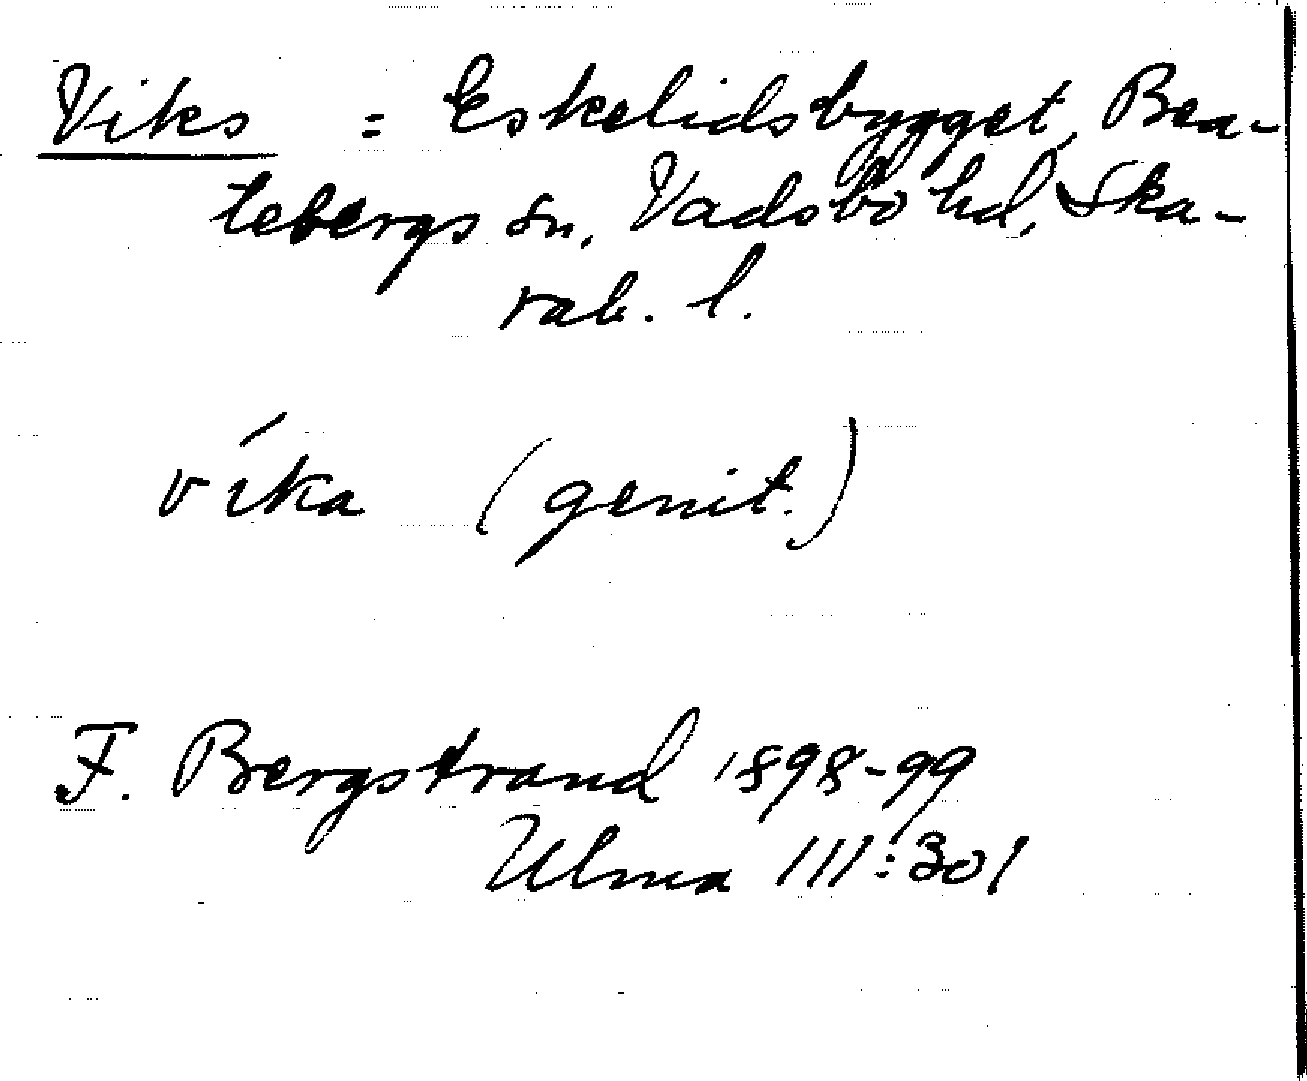 Viks = Eskelidsbygget, Bea-
tebergs sn, Vadsbo hd, Ska-
rab. l.
víka (genit.)
F. Bergstrand 1898-99
Ulma 111:301